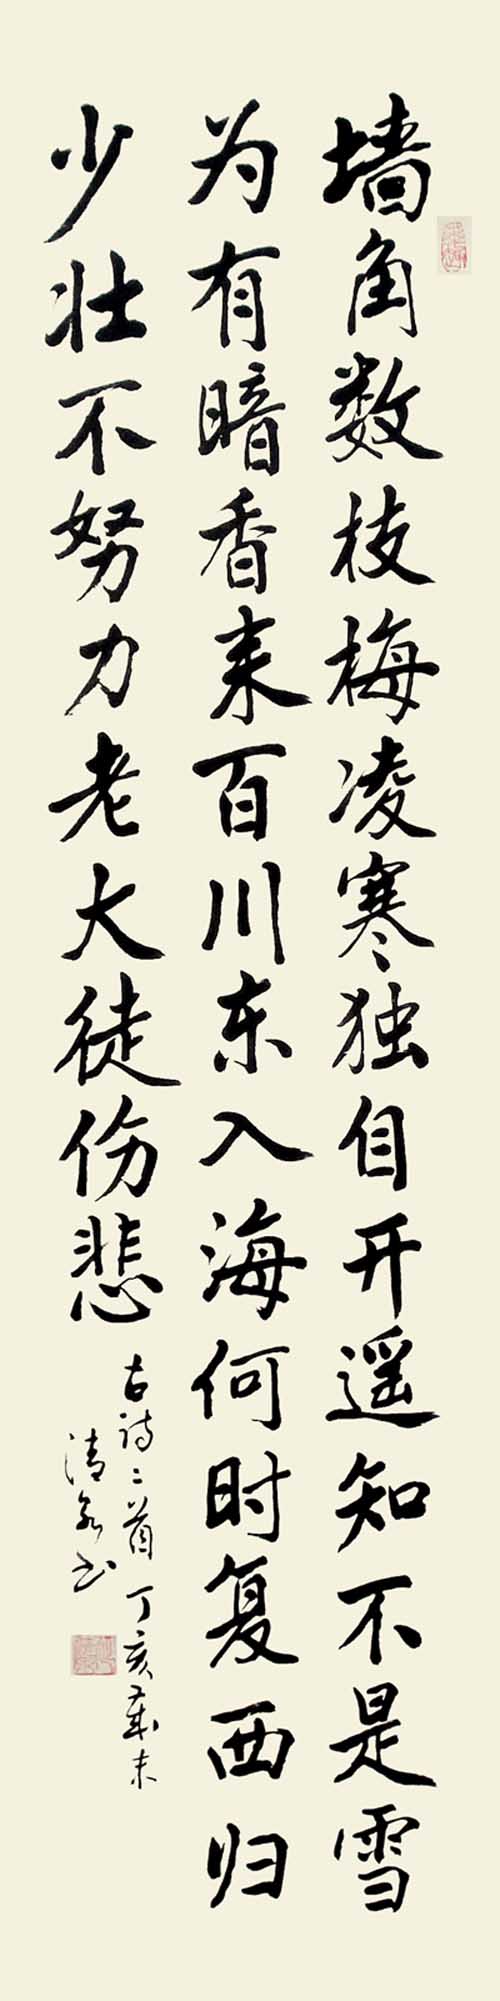 墙角数枝梅凌寒独自开遥知不是雪
为有暗香来百川东入海何时复西归
少壮不努力老大徒伤悲
古诗二首丁亥岁末
清泉书